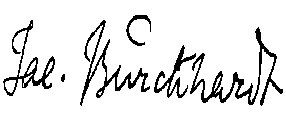 Jac. Burckhardt